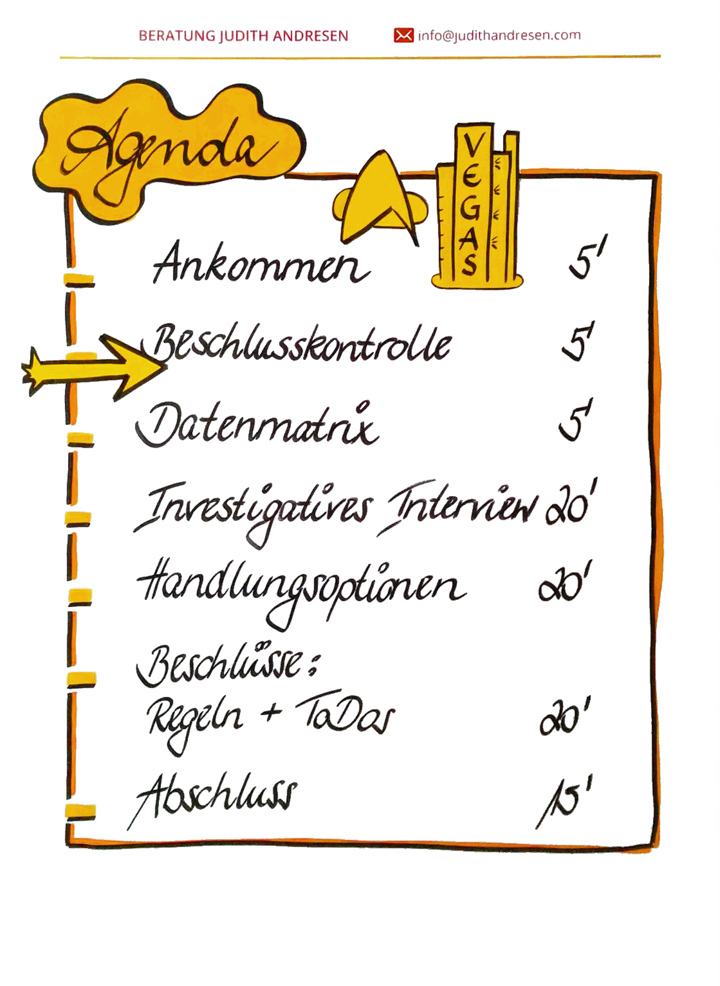 BERATUNG JUDITH ANDRESEN info@judithandresen.com
Agenda
VEGAS
Ankommen 5'
Beschlusskontrolle 5'
Datenmatrix 5'
Investigatives Interview 20'
Handlungsoptionen 20'
Beschlüsse:
Regeln + ToDos 20'
Abschluss 15'